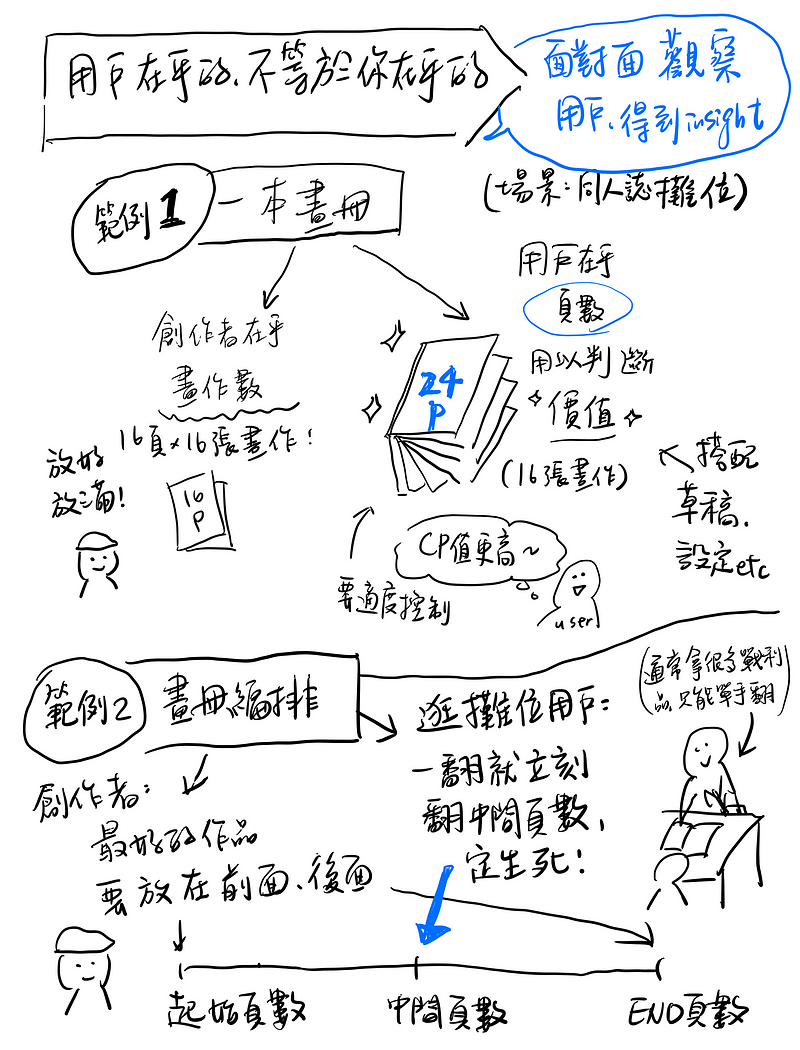 用戶在乎的、不等於你在乎的
面對面觀察
用戶、得到insight
(場景:同人誌攤位)
範例1
一本畫冊
創作者在乎
畫作數
16頁×16張畫作!
放好
放滿!
16
P
24
P
用戶在乎
頁數
用以判斷
價值
(16張畫作)
搭配
草稿、
設定etc
要適度控制
CP值更高~
user
範例2
畫冊編排
創作者:
最好的作品
要放在前面、後面
逛攤位用戶:
一翻就立刻
翻中間頁數,
定生死!
(通常拿很多戰利
品只能單手翻)
起始頁數
中間頁數
END頁數